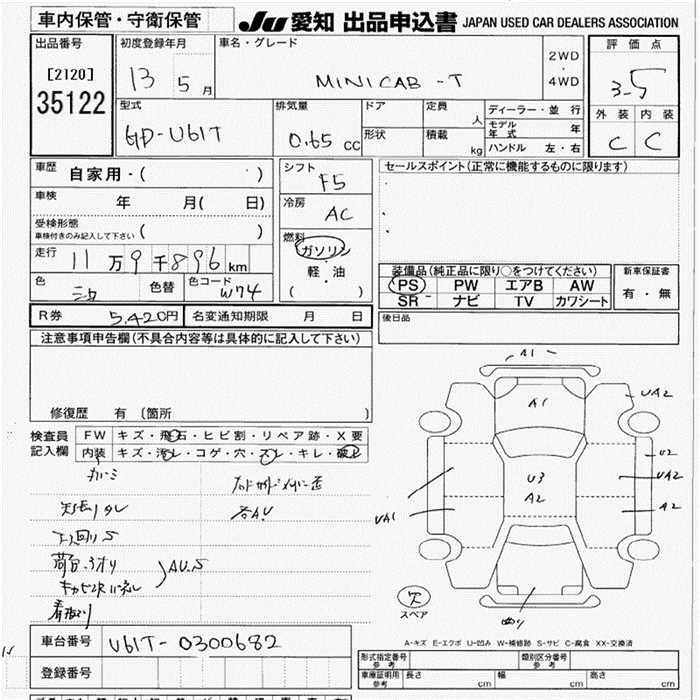 車内保管・守衛保管
JU 愛知 出品申込書 JAPAN USED CAR DEALERS ASSOCIATION
出品番号
[2120]
35122
初度登録年月
13 5 月
車名・グレード
MINICAB -T
2WD
・
4WD
評価点
3.5
外装 内装
C C
型式
GD-U61T
排気量
0.65 cc
ドア
形状
定員
人
積載
kg
ディーラー・並行
モデル年式 年
ハンドル 左・右
車歴
自家用・( )
車検
年 月( 日)
受検形態
車検付きのみ記入して下さい ( )
走行
11万9千896km
色
色替
色コード
W74
シフト
F5
冷房
AC
燃料
ガソリン
・
軽・油
・
( )
セールスポイント(正常に機能するものに限ります)
装備品(純正品に限り○をつけてください)
PS PW エアB AW
SR ナビ TV カワシート
新車保証書
有・無
後日品
R券 5,420円 名変通知期限 月 日
注意事項申告欄(不具合内容等は具体的に記入して下さい)
修復歴 有 〔箇所 〕
検査員
記入欄
FW キズ・飛石・ヒビ割・リペア跡・X要
内装 キズ・汚レ・コゲ・穴・スレ・キレ・破レ
下回りS
AU.S
A1
A1
UA2
U2
UA2
A2
U3
A2
UA1
欠
スペア
A-キズ E-エクボ U-凹み W-補修跡 S-サビ C-腐食 XX-交換済
車台番号 U61T-0300682
登録番号
形式指定番号
参考
類別区分番号
参考
車庫証明用
参考
長さ cm 幅 cm 高さ cm